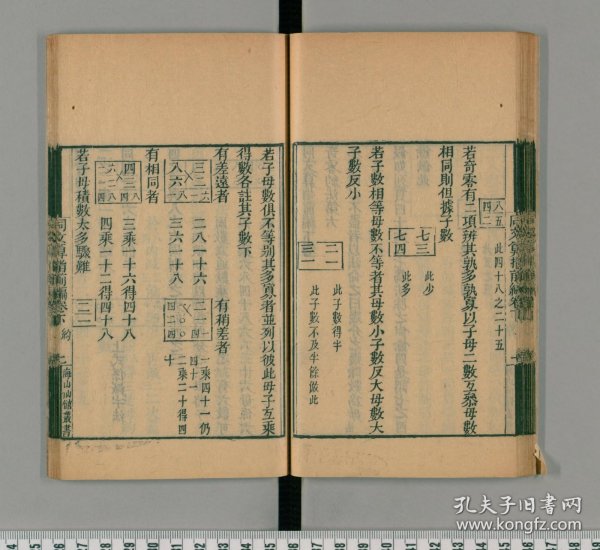 八五
四二
此四十八之二十五
若奇零有二項辨其孰多孰寡以子母二數互叅母數
相同則但據子數
七三
此少
七四
此多
若子數相等母數不等者其母數小子數反大母數大
子數反小
二一
此子數得半
三一
此子數不及半餘倣此
若子母數俱不等別其多寡者並列以彼此母子互乘
得數各註其子數下
有差遠者
三二
八六
二八一十六
三六一十八
有稍差者
一乘四十一仍
四十一
二乘二十得四
十
有相同者
四三
三乘一十六得四十八
四乘一十二得四十八
若子母積數太多驟難
同文算指前編卷下
約
七
海山仙館叢書
孔夫子旧书网
www.kongfz.com